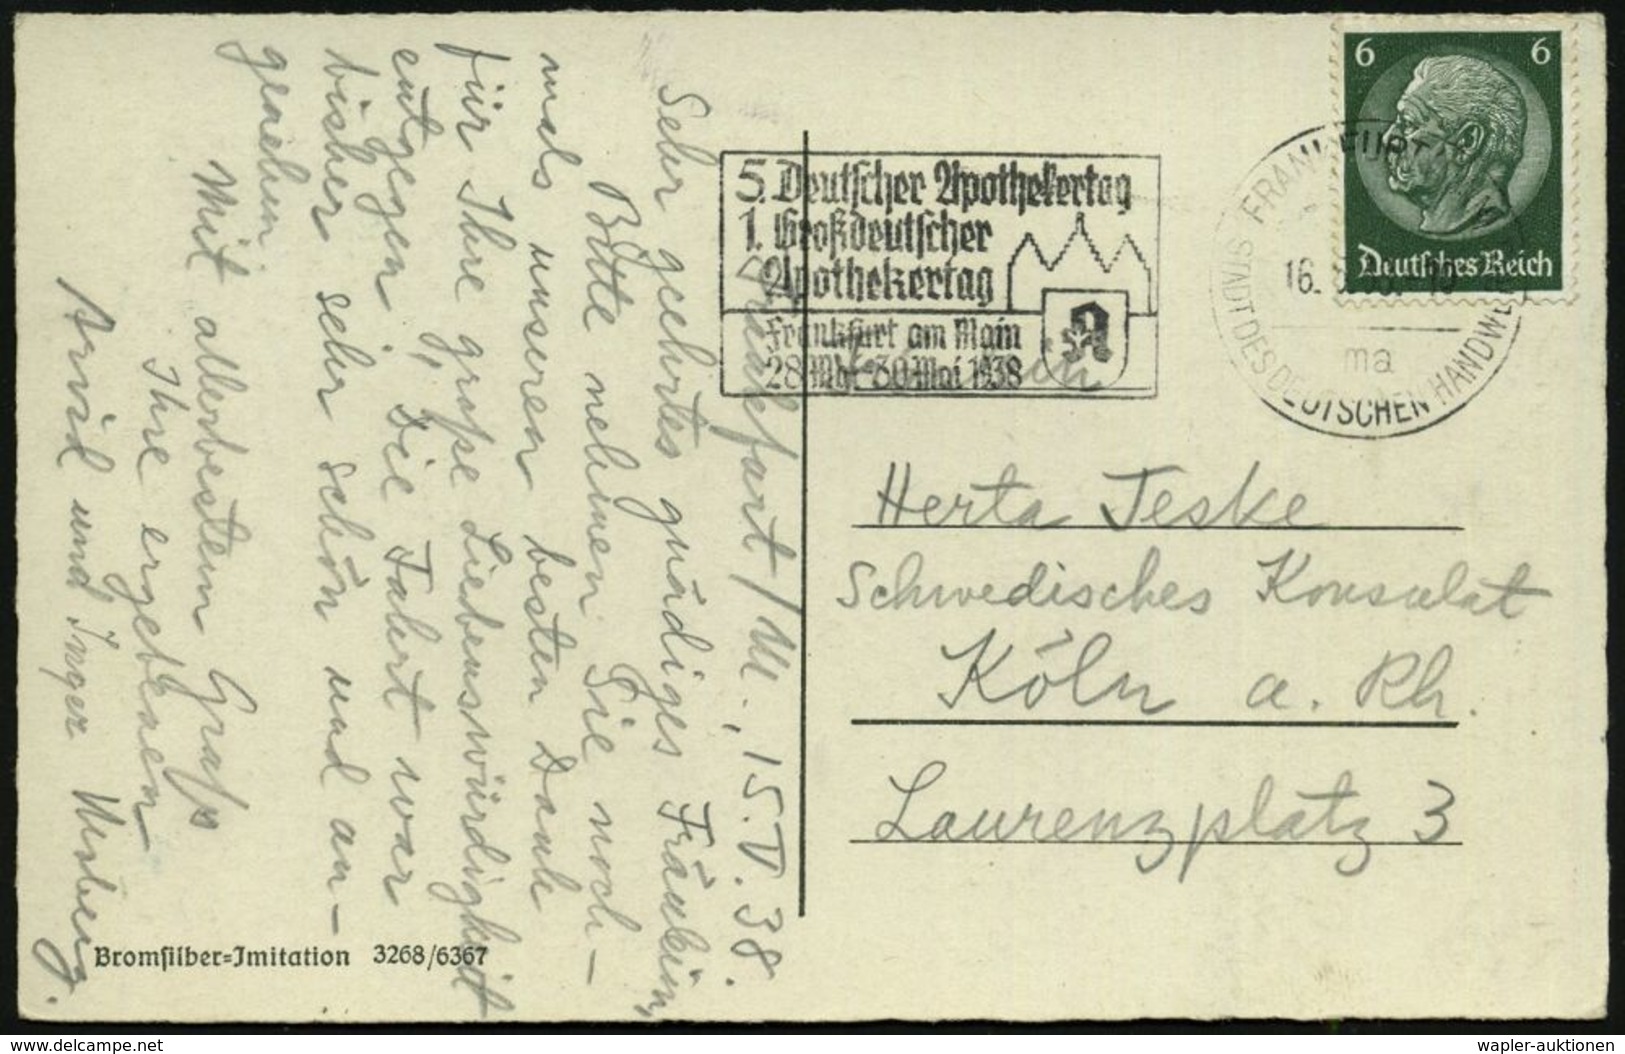 6 6
Deutsches Reich
5. Deutscher Apothekertag
1. Großdeutscher
Apothekertag
Frankfurt am Main
28. Mai - 30. Mai 1938
A
STADT DES DEUTSCHEN HANDWERKS
16.
ma
Frankfart/M., 15.V.38.
Sehr geehrtes gnädiges Fräulein
Bitte nehmen Sie noch-
mals unseren besten Dank
für Ihre große Liebenswürdigkeit
entgegen. Die Fahrt war
bisher sehr schön und an-
genehm
Mit allerbestem Gruß
Ihre ergebenen
Arvid und Inger Moberg.
Herta Teske
Schwedisches Konsulat
Köln a. Rh.
Laurenzplatz 3
Bromsilber=Imitation 3268/6367
delcampe.net
wapler-auktionen